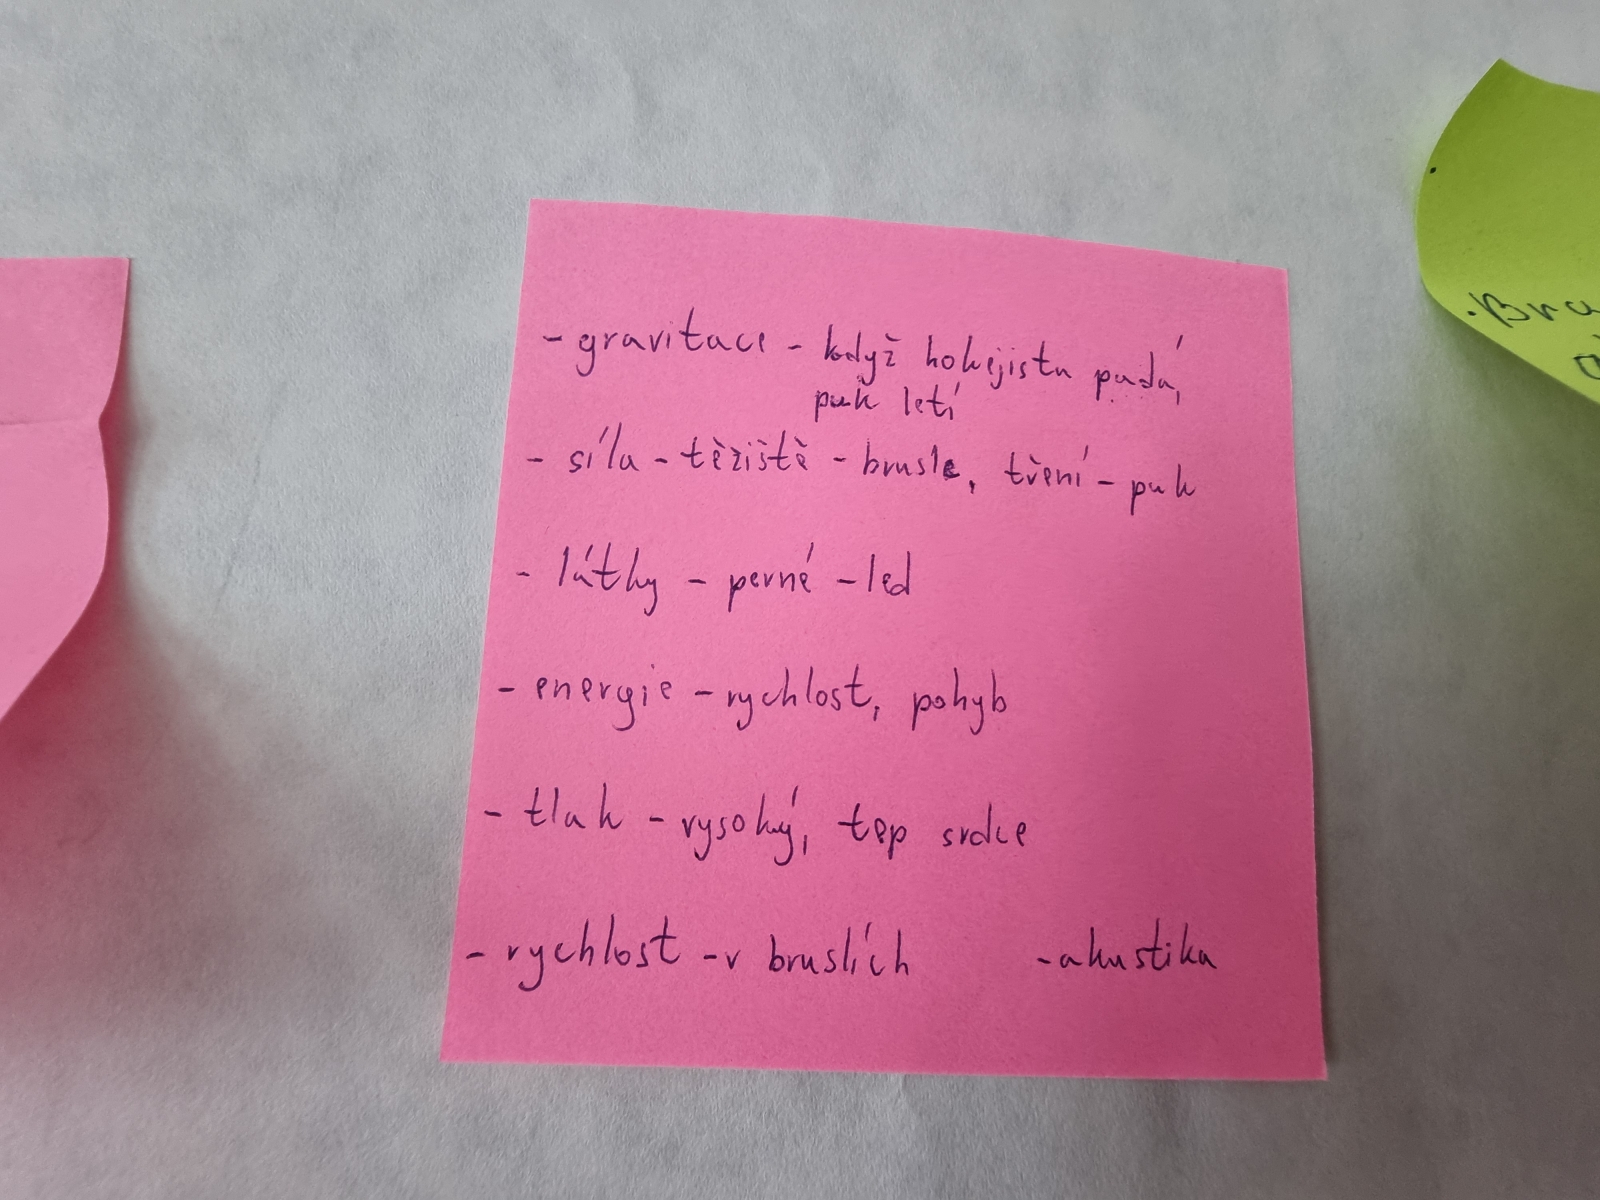 - gravitace - když hokejista padá,
puk letí
- síla - těžiště - brusle, tření - puk
- látky - pevné - led
- energie - rychlost, pohyb
- tlak - vysoký, tep srdce
- rychlost - v bruslích - akustika